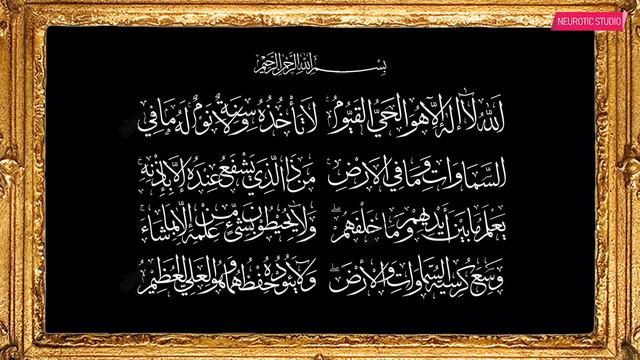 NEUROTIC STUDIO
بسم الله الرحمن الرحيم
الله لا إله إلا هو الحي القيوم لا تأخذه سنة ولا نوم له ما في
السماوات وما في الأرض من ذا الذي يشفع عنده إلا بإذنه
يعلم ما بين أيديهم وما خلفهم ولا يحيطون بشيء من علمه إلا بما شاء
وسع كرسيه السماوات والأرض ولا يئوده حفظهما وهو العلي العظيم